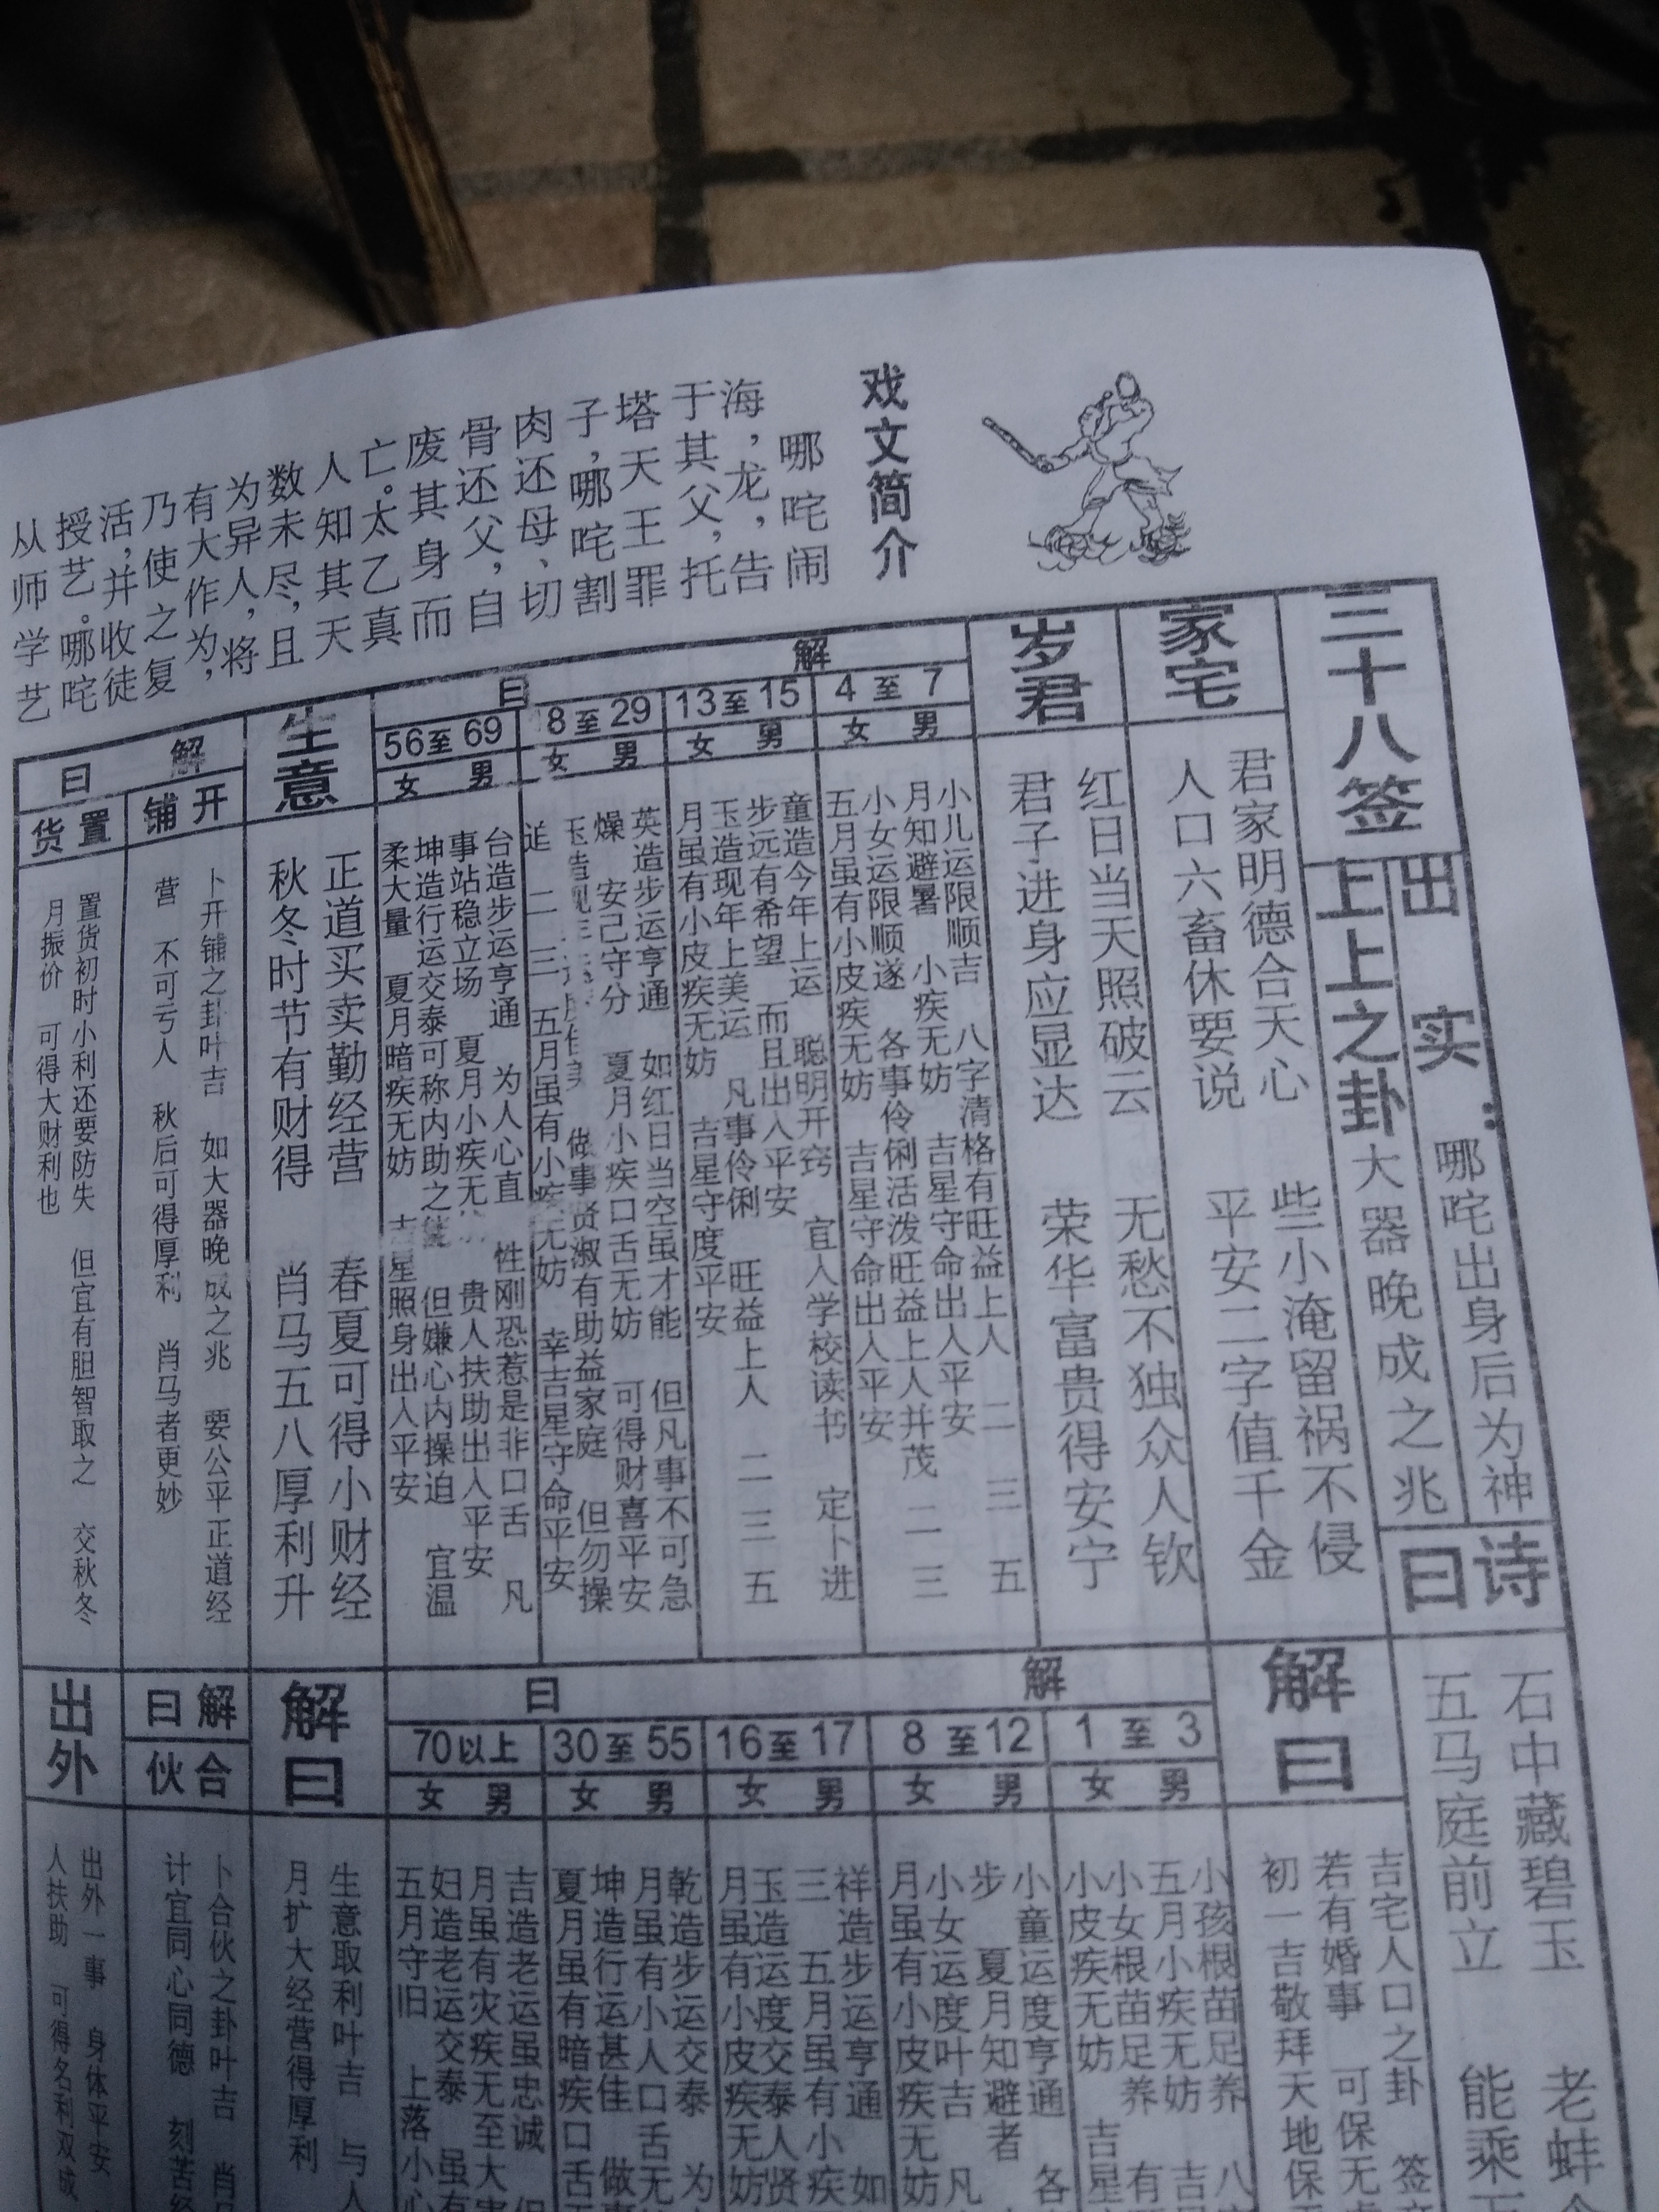 戏文简介
哪咤闹
海，龙，告
于其父，托
塔天王罪
子，哪咤割
肉还母、切
骨还父，自
废其身而
亡。太乙真
人知其天
数未尽，且
为异人，将
有大作为，
乃使之复
活，并收徒
授艺。哪咤
从师学艺
三十八签
出实：哪咤出身后为神
上上之卦 大器晚成之兆
诗曰
石中藏碧玉 老蚌
五马庭前立 能乘
家宅
君家明德合天心 些小淹留祸不侵
人口六畜休要说 平安二字值千金
解曰
吉宅人口之卦
若有婚事 可保无
初一吉敬拜天地保
岁君
红日当天照破云 无愁不独众人钦
君子进身应显达 荣华富贵得安宁
解曰
4至7
男 女
小儿运限顺吉 八字清格有旺益上人 二 三 五
月知避暑 小疾无妨 吉星守命出入平安
小女运限顺遂 各事伶俐活泼旺益上人并茂 二 三
五月虽有小皮疾无妨 吉星守命出入平安
13至15
男 女
童造今年上运 聪明开窍 宜入学校读书 定卜进
步远有希望 而且出入平安
玉造现年上美运 凡事伶俐 旺益上人 二 三 五
月虽有小皮疾无妨 吉星守度平安
8至29
男 女
英造步运亨通 如红日当空虽才能 但凡事不可急
燥 安己守分 夏月小疾口舌无妨 可得财喜平安
做事贤淑有助益家庭 但勿操
迫 二 三 五月虽有小疾无妨 幸吉星守命平安
56至69
男 女
台造步运亨通 为人心直 性刚恐惹是非口舌 凡
事站稳立场 夏月小疾无 贵人扶助出入平安
坤造行运交泰可称内助之 但嫌心内操迫 宜温
柔大量 夏月暗疾无妨 吉星照身出入平安
解曰
1至3
男 女
小孩根苗足养 八
五月小疾无妨 吉
小女根苗足养 有
小皮疾无妨 吉星
8至12
男 女
小童运度亨通 各
步 夏月知避者
小女运度叶吉 凡
月虽有小皮疾无妨
16至17
男 女
祥造步运亨通 如
三 五月虽有小疾
玉造运度交泰人贤
月虽有小皮疾无妨
30至55
男 女
乾造步运交泰 为
月虽有小人口舌无
坤造行运甚佳 做事
夏月虽有暗疾口舌
70以上
男 女
吉造老运虽忠诚
月虽有灾疾无至大
妇造老运交泰 虽有
五月守旧 上落小心
生意
正道买卖勤经营 春夏可得小财经
秋冬时节有财得 肖马五八厚利升
解曰
生意取利叶吉 与人
月扩大经营得厚利
解曰
开铺
卜开铺之卦叶吉 如大器晚成之兆 要公平正道经
营 不可亏人 秋后可得厚利 肖马者更妙
置货
置货初时小利还要防失 但宜有胆智取之 交秋冬
月振价 可得大财利也
解曰
合伙
卜合伙之卦叶吉 肖
计宜同心同德 刻苦经
出外
出外一事 身体平安
人扶助 可得名利双成